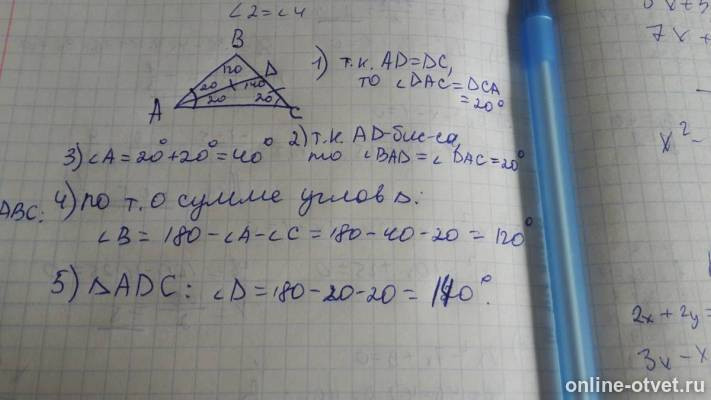 ∠2=∠4
B
120 D
20 140
A 20 20 C
1) т.к. AD=DC,
то ∠DAC=DCA
=20°
2) т.к. AD-бис-са,
то ∠BAD=∠DAC=20°
3) ∠A=20°+20°=40°
ABC: 4) по т. о сумме углов ▵:
∠B = 180-∠A-∠C = 180-40-20 = 120°
5) ▵ADC: ∠D=180-20-20= 140°.
7x+
x²-
2x+2y=
3x-x
online-otvet.ru